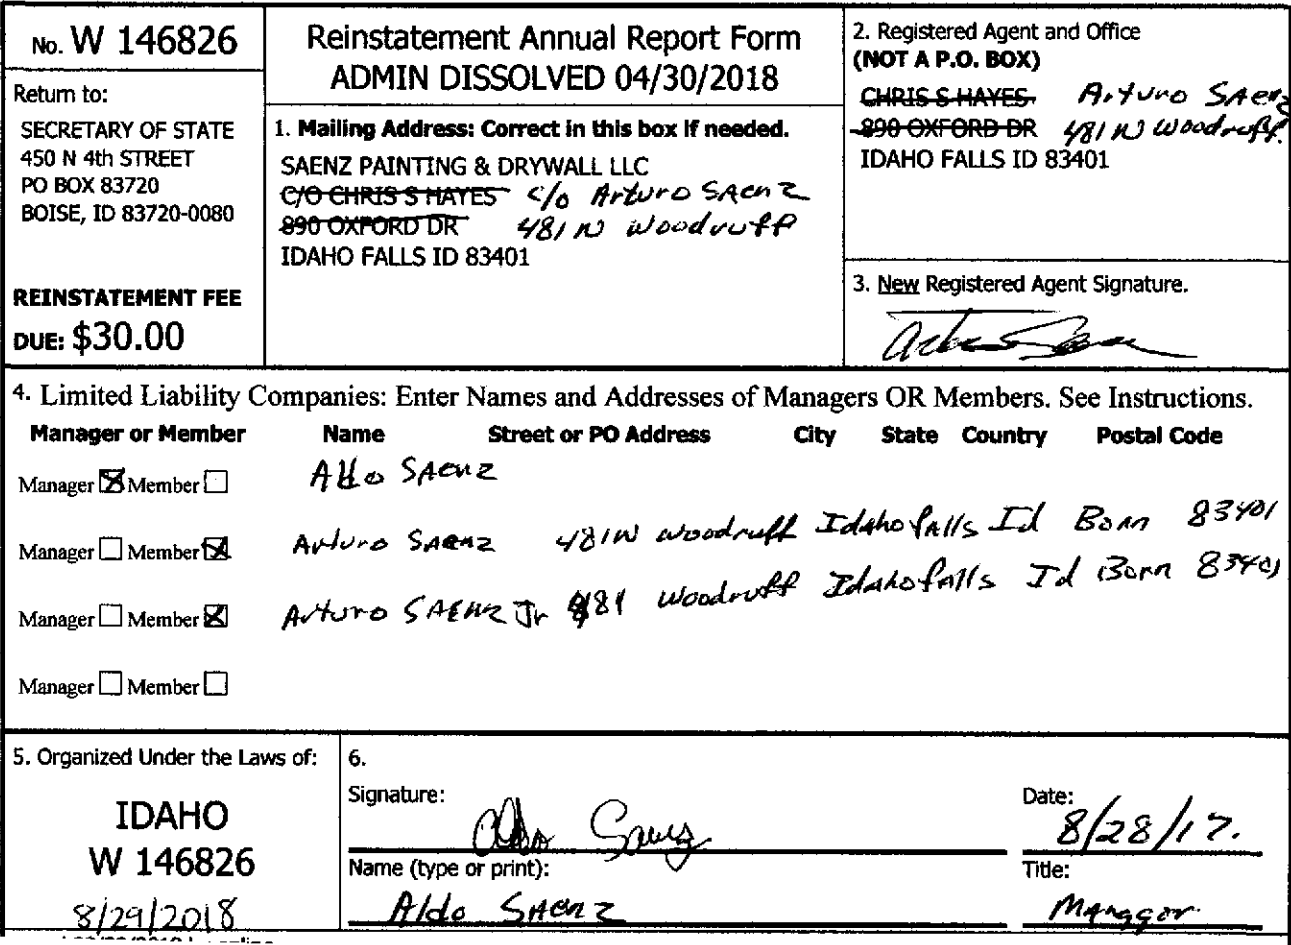 No. W 146826
Return to:
SECRETARY OF STATE
450 N 4th STREET
PO BOX 83720
BOISE, ID 83720-0080
REINSTATEMENT FEE
DUE: $30.00
Reinstatement Annual Report Form
ADMIN DISSOLVED 04/30/2018
1. Mailing Address: Correct in this box if needed.
SAENZ PAINTING & DRYWALL LLC
C/O CHRIS S HAYES c/o Arturo SAenz
890 OXFORD DR 481 N Woodruff
IDAHO FALLS ID 83401
2. Registered Agent and Office
(NOT A P.O. BOX)
CHRIS S HAYES Arturo SAenz
890 OXFORD DR 481 N Woodruff.
IDAHO FALLS ID 83401
3. New Registered Agent Signature.
4. Limited Liability Companies: Enter Names and Addresses of Managers OR Members. See Instructions.
Manager or Member Name Street or PO Address City State Country Postal Code
Manager Member Aldo SAenz
Manager Member Arturo SAenz 481 N Woodruff Idaho falls Id Bonn 83401
Manager Member Arturo SAENZ Jr 481 Woodruff Idaho falls Id Bonn 83401
Manager Member
5. Organized Under the Laws of:
IDAHO
W 146826
8/29/2018
6.
Signature: Aldo Saenz
Date: 8/28/17.
Name (type or print): Aldo SAenz
Title: Manager